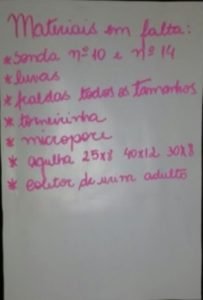 Materiais em falta:
* sonda nº 10 e nº 14
* luvas
* fraldas todos os tamanhos
* torneirinha
* micropore
* agulha 25x8 40x12 30x8
* coletor de urim adulto